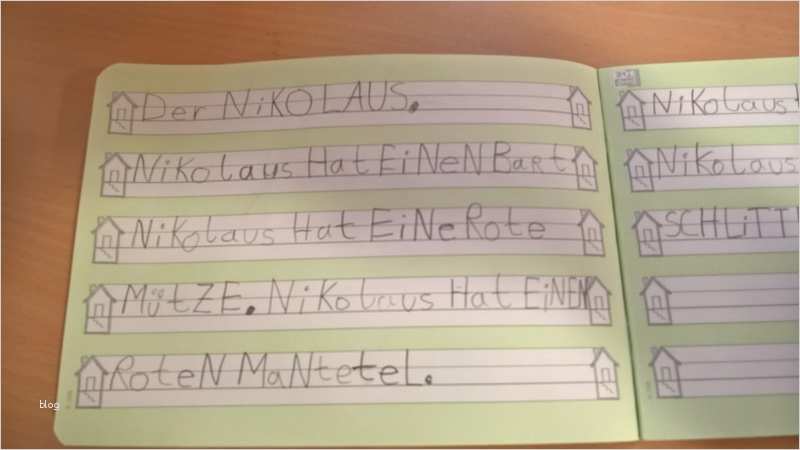 Der NiKOLAUS.
NiKolaus Hat EiNeN Bart
NiKolaus Hat EiNe Rote
MütZE. NiKolaus Hat EiNEN
RoteN MaNtetel.
NiKolaus
NiKolaus
SCHLiTT
blog